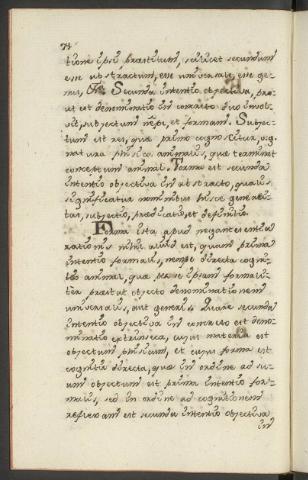 74
tione ipsi præstitum, scilicet secundum
esse abstractum, esse universale, esse ge-
nus, Secunda intentio objectiva, pro-
ut est denominatio in concreto duo invol-
vit, subjectum nempe, et formam. Subjec-
tum est res, quæ primo cognoscitur, v.g.
natura physica animalis, quæ terminat
conceptum animal. Forma est secunda
intentio objectiva in abstracto, qualis
significatur nominibus hisce generali-
tas, subjectio, prædicatio, et definitio.
Forma ista apud negantes entia
rationis nihil aliud est, quam prima
intentio formalis, nempe directa cogni-
tio animal, quæ per se ipsam formali-
ter præstat objecto denominationem
universalis, aut generis. Quare secunda
intentio objectiva in concreto est deno-
minatio extrinseca, cujus materia est
objectum primum, et cujus forma est
cognitio directa, quæ in ordine ad su-
um objectum est prima intentio for-
malis, sed in ordine ad cognitionem
reflexam est secunda intentio objectiva
in